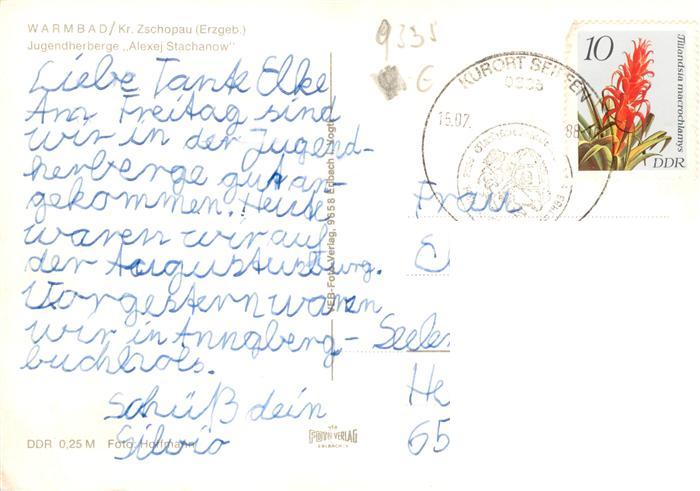 WARMBAD/Kr. Zschopau (Erzgeb.)
Jugendherberge „Alexej Stachanow"
Liebe Tante Elke
Am Freitag sind
wir in der Jugend-
herberge gut an-
gekommen. Heute
waren wir auf
der Augustusburg.
Vorgestern waren
wir in Annaberg-
buchhols.
Schüß dein
Silvio
DDR 0,25 M Foto: Hoffmann
VEB-Foto-Verlag, 9658 Erlbach i. Vogtl.
VERLAG
ERLBACH
9335
G
KURORT SEIFFEN
15.07.
88
10
Tillandsia macrochlamys
DDR
Frau
E
Seelen
He
65